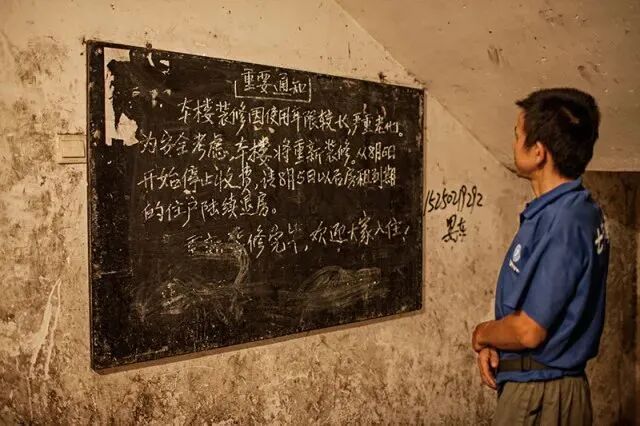 重要通知
本楼装修因使用年限较长严重老化。
为安全考虑,本楼将重新装修。从8月5日
开始停止收费,请8月5日以后房租到期
的住户陆续退房。
修完毕,欢迎大家入住!
15250219292